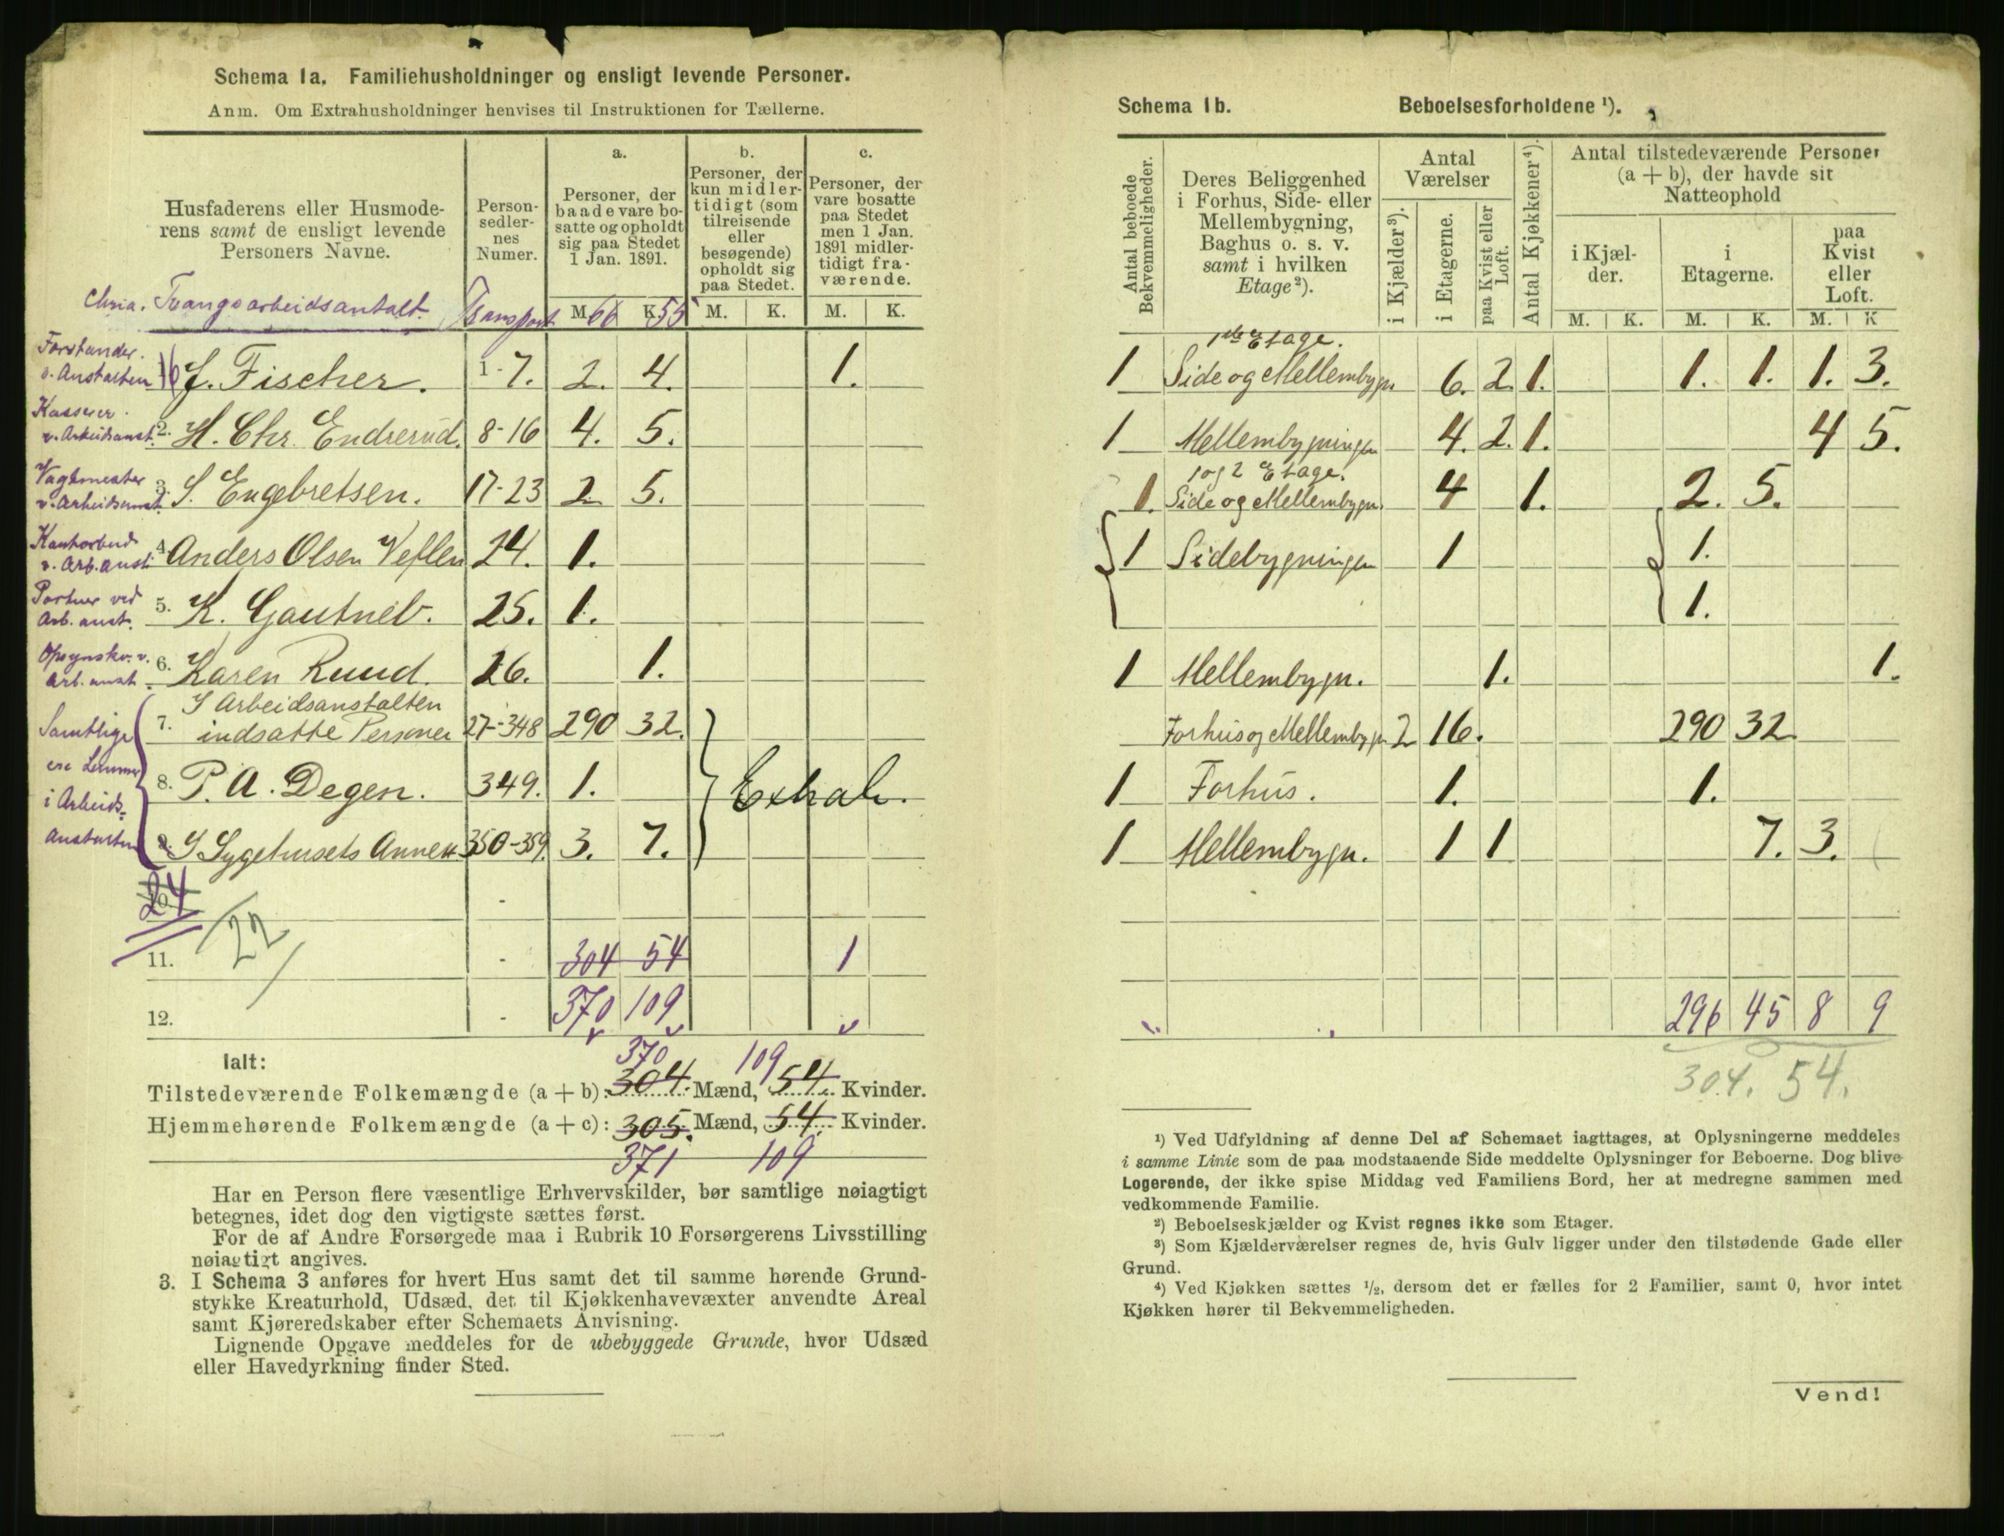 Schema 1a. Familiehusholdninger og ensligt levende Personer.
Anm. Om Extrahusholdninger henvises til Instruktionen for Tællerne.
Husfaderens eller Husmode-
rens samt de ensligt levende
Personers Navne.
Person-
sedler-
nes
Numer.
a.
Personer, der
baade vare bo-
satte og opholdt
sig paa Stedet
1 Jan. 1891.
b.
Personer, der
kun midler-
tidigt (som
tilreisende
eller
besøgende)
opholdt sig
paa Stedet.
c.
Personer, der
vare bosatte
paa Stedet
men 1 Jan.
1891 midler-
tidigt fra-
værende.
Chria. Tvangsarbeidsanstalt Transport M. 66 K. 55 M. K. M. K.
Forstander
v. Anstalten J. Fischer. 1-7. 2. 4. 1.
Kasserer
v. Arbeidsanst. 2. H. Chr. Endrerud. 8-16 4. 5.
Vagtmester
v. Arbeidsanst. 3. S. Engebretsen. 17-23 2 5.
Kontorbud
v. Arb. anst. 4. Anders Olsen Veflen 24. 1.
Portner ved
Arb. anst. 5. K. Gautneb. 25. 1.
Opsynskv. v.
Arb. anst. 6. Karen Ruud. 26. 1.
Samtlige
ere Lemmer
i Arbeids-
Anstalten
7. I Arbeidsanstalten
indsatte Personer 27-348 290 32.
8. P. A. Degen. 349. 1. Extrah.
9. I Sygehusets Annex 350-359. 3. 7.
24
22
11. 304 54 1
12. 370 109
Ialt:
370 109
Tilstedeværende Folkemængde (a + b): 304. Mænd, 54. Kvinder.
Hjemmehørende Folkemængde (a + c): 305. Mænd, 54. Kvinder.
371 109
Har en Person flere væsentlige Erhvervskilder, bør samtlige nøiagtigt
betegnes, idet dog den vigtigste sættes først.
For de af Andre Forsørgede maa i Rubrik 10 Forsørgerens Livsstilling
nøiagtigt angives.
3. I Schema 3 anføres for hvert Hus samt det til samme hørende Grund-
stykke Kreaturhold, Udsæd, det til Kjøkkenhavevæxter anvendte Areal
samt Kjøreredskaber efter Schemaets Anvisning.
Lignende Opgave meddeles for de ubebyggede Grunde, hvor Udsæd
eller Havedyrkning finder Sted.
Schema 1b. Beboelsesforholdene ¹).
Antal beboede
Bekvemmeligheder.
Deres Beliggenhed
i Forhus, Side- eller
Mellembygning,
Baghus o. s. v.
samt i hvilken
Etage²).
Antal
Værelser
i Kjælder³).
i Etagerne.
paa Kvist eller
Loft.
Antal Kjøkkener⁴).
Antal tilstedeværende Personer
(a + b), der havde sit
Natteophold
i Kjæl-
der.
i
Etagerne.
paa
Kvist
eller
Loft.
M. K. M. K. M. K
1ste Etage.
1 Side og Mellembygn 6. 2 1. 1. 1. 1. 3.
1 Mellembygningen 4. 2. 1. 4 5.
1 og 2 Etage.
1. Side og Mellembygn. 4 1. 2. 5.
1 Sidebygningen 1 1.
1.
1 Mellembygn. 1. 1.
Forhus og Mellembygn 2 16. 290 32.
1 Forhus. 1. 1.
1 Mellembygn. 1 1 7. 3.
296 45 8 9
304. 54.
¹) Ved Udfyldning af denne Del af Schemaet iagttages, at Oplysningerne meddeles
i samme Linie som de paa modstaaende Side meddelte Oplysninger for Beboerne. Dog blive
Logerende, der ikke spise Middag ved Familiens Bord, her at medregne sammen med
vedkommende Familie.
²) Beboelseskjælder og Kvist regnes ikke som Etager.
³) Som Kjælderværelser regnes de, hvis Gulv ligger under den tilstødende Gade eller
Grund.
⁴) Ved Kjøkken sættes ¹/₂, dersom det er fælles for 2 Familier, samt 0, hvor intet
Kjøkken hører til Bekvemmeligheden.
Vend!